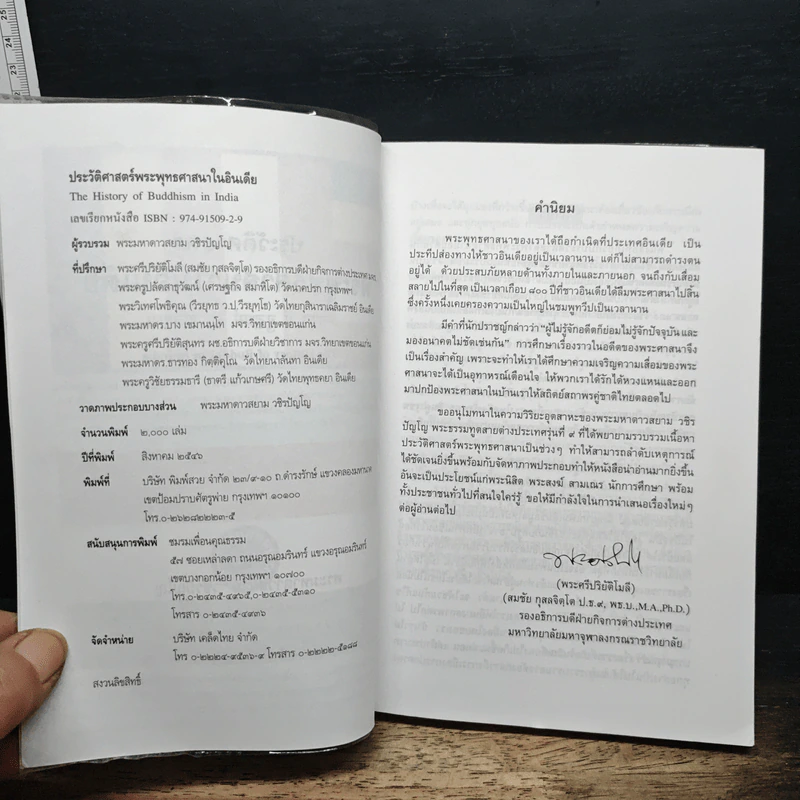 25
24
23
ประวัติศาสตร์พระพุทธศาสนาในอินเดีย
The History of Buddhism in India
เลขเรียกหนังสือ ISBN : 974-91509-2-9
ผู้รวบรวม พระมหาดาวสยาม วชิรปัญโญ
ที่ปรึกษา พระศรีปริยัติโมลี (สมชัย กุสลจิตฺโต) รองอธิการบดีฝ่ายกิจการต่างประเทศ
พระครูปลัดสาธุวัฒน์ (เศรษฐกิจ สมาหิโต) วัดนาคปรก กรุงเทพฯ
พระวิเทศโพธิคุณ (วีรยุทธ ว.ป.วีรยุทฺโธ) วัดไทยกุสินาราเฉลิมราชย์ อินเดีย
พระมหาดร.บาง เขมานนฺโท มจร.วิทยาเขตขอนแก่น
พระครูศรีปริยัติสุนทร ผช.อธิการบดีฝ่ายวิชาการ มจร.วิทยาเขตขอนแก่น
พระมหาดร.ธารทอง กิตติคุโณ วัดไทยนาลันทา อินเดีย
พระครูวิชัยธรรมธารี (ชาตรี แก้วเกษศรี) วัดไทยพุทธคยา อินเดีย
วาดภาพประกอบบางส่วน พระมหาดาวสยาม วชิรปัญโญ
จำนวนพิมพ์ ๒,๐๐๐ เล่ม
ปีที่พิมพ์ สิงหาคม ๒๕๔๖
พิมพ์ที่ บริษัท พิมพ์สวย จำกัด ๒๓/๙-๑๐ ถ.ดำรงรักษ์ แขวงคลองมหานาค
เขตป้อมปราบศัตรูพ่าย กรุงเทพฯ ๑๐๑๐๐
โทร.๐-๒๖๒๘๒๒๒๓-๕
สนับสนุนการพิมพ์ ชมรมเพื่อนคุณธรรม
๕๗ ซอยเหล่าลดา ถนนอรุณอมรินทร์ แขวงอรุณอมรินทร์
เขตบางกอกน้อย กรุงเทพฯ ๑๐๗๐๐
โทร.๐-๒๔๓๕-๔๙๖๕,๐-๒๔๓๕-๕๓๑๐
โทรสาร ๐-๒๔๓๕-๔๙๓๖
จัดจำหน่าย บริษัท เคล็ดไทย จำกัด
โทร ๐-๒๒๒๔-๙๕๓๖-๙ โทรสาร ๐-๒๒๒๒-๕๑๘๘
สงวนลิขสิทธิ์
คำนิยม
พระพุทธศาสนาของเราได้ถือกำเนิดที่ประเทศอินเดีย เป็น
ประทีปส่องทางให้ชาวอินเดียอยู่เป็นเวลานาน แต่ก็ไม่สามารถดำรงตน
อยู่ได้ ด้วยประสบภัยหลายด้านทั้งภายในและภายนอก จนถึงกับเสื่อม
สลายไปในที่สุด เป็นเวลาเกือบ ๘๐๐ ปีที่ชาวอินเดียได้ลืมพระศาสนาไปสิ้น
ซึ่งครั้งหนึ่งเคยครองความเป็นใหญ่ในชมพูทวีปเป็นเวลานาน
มีคำที่นักปราชญ์กล่าวว่า “ผู้ไม่รู้จักอดีตก็ย่อมไม่รู้จักปัจจุบัน และ
มองอนาคตไม่ชัดเช่นกัน” การศึกษาเรื่องราวในอดีตของพระศาสนาจึง
เป็นเรื่องสำคัญ เพราะจะทำให้เราได้ศึกษาความเจริญความเสื่อมของพระ
ศาสนาจะได้เป็นอุทาหรณ์เตือนใจ ให้พวกเราได้รักได้หวงแหนและออก
มาปกป้องพระศาสนาในบ้านเราให้สถิตย์สถาพรคู่ชาติไทยตลอดไป
ขออนุโมทนาในความวิริยะอุตสาหะของพระมหาดาวสยาม วชิร
ปัญโญ พระธรรมทูตสายต่างประเทศรุ่นที่ ๙ ที่ได้พยายามรวบรวมเนื้อหา
ประวัติศาสตร์พระพุทธศาสนาเป็นช่วงๆ ทำให้สามารถลำดับเหตุการณ์
ได้ชัดเจนยิ่งขึ้นพร้อมกับจัดหาภาพประกอบทำให้หนังสือน่าอ่านมากยิ่งขึ้น
อันจะเป็นประโยชน์แก่พระนิสิต พระสงฆ์ สามเณร นักการศึกษา พร้อม
ทั้งประชาชนทั่วไปที่สนใจใคร่รู้ ขอให้มีกำลังใจในการนำเสนอเรื่องใหม่ๆ
ต่อผู้อ่านต่อไป
(พระศรีปริยัติโมลี)
(สมชัย กุสลจิตฺโต ป.ธ.๙, พธ.บ.,M.A.,Ph.D.)
รองอธิการบดีฝ่ายกิจการต่างประเทศ
มหาวิทยาลัยมหาจุฬาลงกรณราชวิทยาลัย